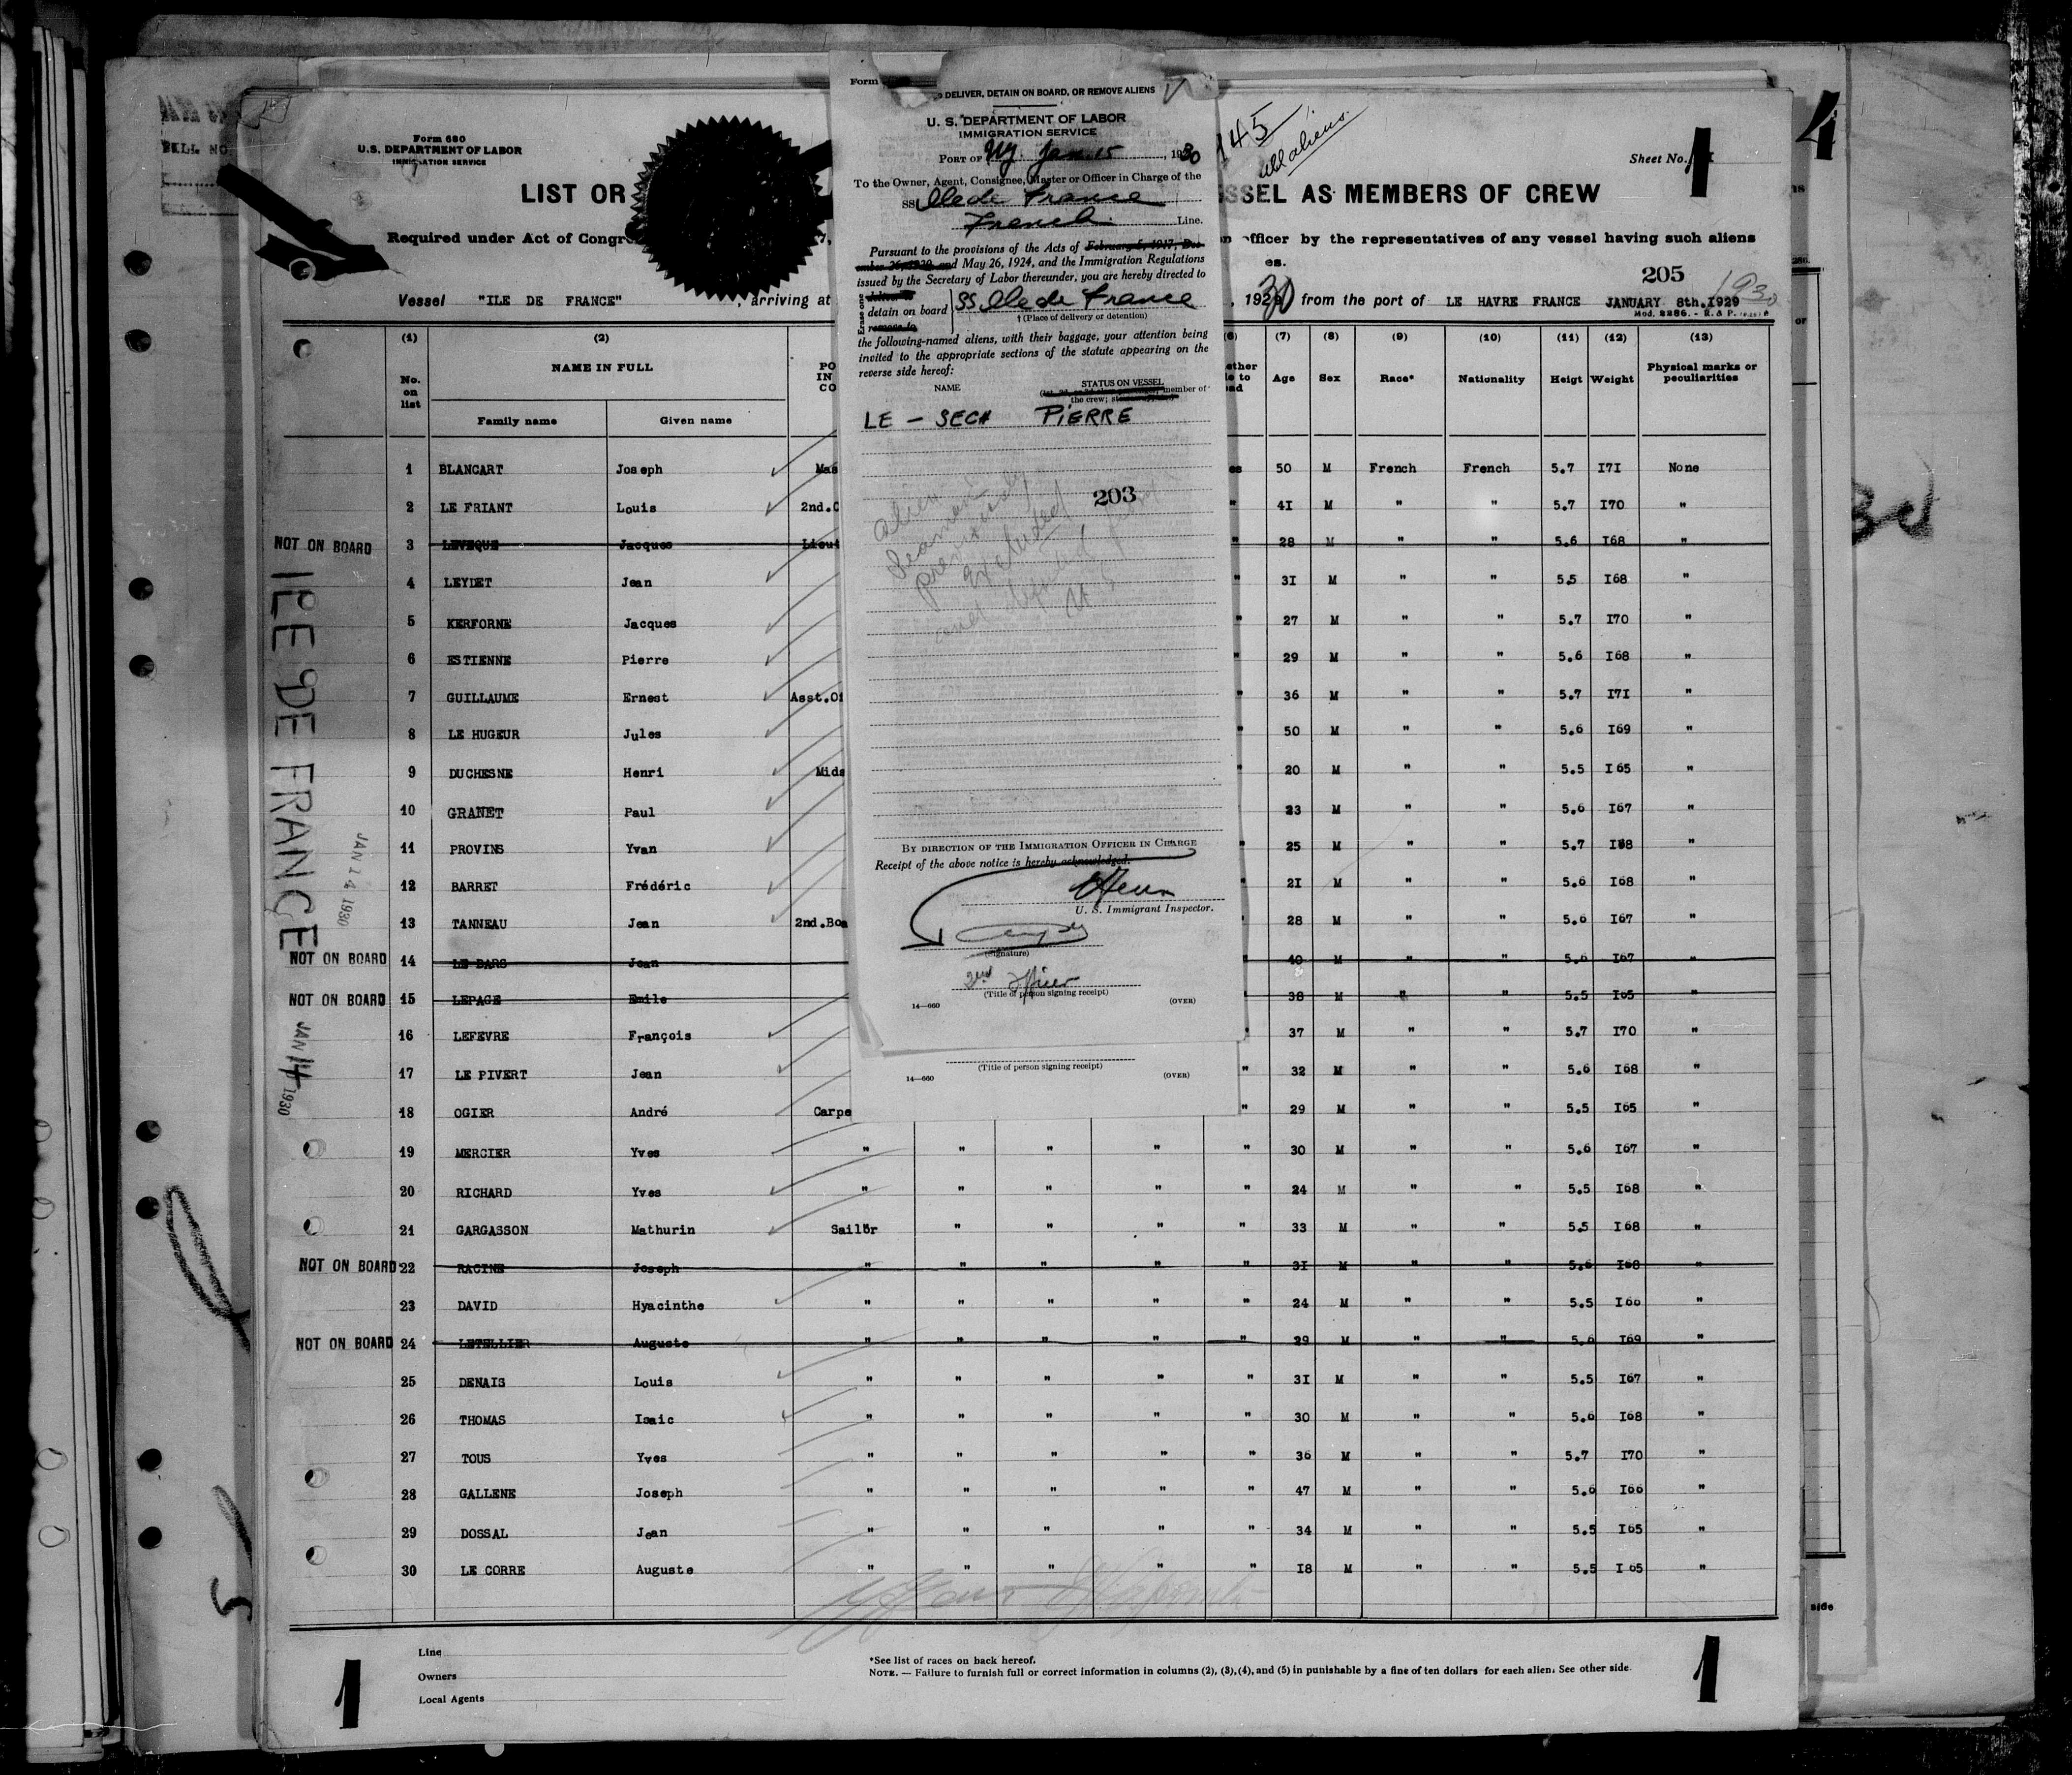 Form 680
U.S. DEPARTMENT OF LABOR
IMMIGRATION SERVICE
LIST OR
SSEL AS MEMBERS OF CREW
Sheet No. 1
4
145
all aliens.
Required under Act of Congre
7,
n officer by the representatives of any vessel having such aliens
es.
205
Vessel "ILE DE FRANCE" , arriving at
, 1929 30 from the port of LE HAVRE FRANCE JANUARY 8th.1929 1930
Mod. 2286. - R. & P.
Form
O DELIVER, DETAIN ON BOARD, OR REMOVE ALIENS
U. S. DEPARTMENT OF LABOR
IMMIGRATION SERVICE
PORT OF NY. Jan. 15, 1930
To the Owner, Agent, Consignee, Master or Officer in Charge of the
SS Ile de France
French Line.
Pursuant to the provisions of the Acts of February 5, 1917, Dec-
ember 26, 1920, and May 26, 1924, and the Immigration Regulations
issued by the Secretary of Labor thereunder, you are hereby directed to
Erase one
deliver to
detain on board
remove to
SS Ile de France
† (Place of delivery or detention)
the following-named aliens, with their baggage, your attention being
invited to the appropriate sections of the statute appearing on the
reverse side hereof:
NAME STATUS ON VESSEL
member of
the crew;
LE - SECH PIERRE
203
alien
seaman
previously
excluded
and deported from
U S
BY DIRECTION OF THE IMMIGRATION OFFICER IN CHARGE
Receipt of the above notice is hereby acknowledged.
U. S. Immigrant Inspector.
(Signature)
2nd Officer
(Title of person signing receipt)
14—660 (OVER)
(Title of person signing receipt)
14—660 (OVER)
(1) (2) (6) (7) (8) (9) (10) (11) (12) (13)
No. on list
NAME IN FULL
Family name Given name
PO
IN
CO
ether
le to
ad
Age Sex Race* Nationality Heigt Weight Physical marks or peculiarities
1 BLANCART Joseph Mas es 50 M French French 5.7 I7I None
2 LE FRIANT Louis 2nd.O " 4I M " " 5.7 I70 "
NOT ON BOARD 3 LEVEQUE Jacques Lieut " 28 M " " 5.6 I68 "
4 LEYDET Jean " 3I M " " 5.5 I68 "
5 KERFORNE Jacques " 27 M " " 5.7 I70 "
6 ESTIENNE Pierre " 29 M " " 5.6 I68 "
7 GUILLAUME Ernest Asst.Of " 36 M " " 5.7 I7I "
8 LE HUGEUR Jules " 50 M " " 5.6 I69 "
9 DUCHESNE Henri Mids " 20 M " " 5.5 I65 "
10 GRANET Paul 23 M " " 5.6 I67 "
11 PROVINS Yvan " 25 M " " 5.7 I68 "
12 BARRET Frédéric " 2I M " " 5.6 I68 "
13 TANNEAU Jean 2nd.Boa " 28 M " " 5.6 I67 "
NOT ON BOARD 14 LE BARS Jean " 40 M " " 5.6 I67 "
NOT ON BOARD 15 LEPAGE Emile " 38 M " " 5.5 I65 "
16 LEFEVRE François " 37 M " " 5.7 I70 "
17 LE PIVERT Jean " 32 M " " 5.6 I68 "
18 OGIER André Carpe " 29 M " " 5.5 I65 "
19 MERCIER Yves " " " " " 30 M " " 5.6 I67 "
20 RICHARD Yves " " " " " 24 M " " 5.5 I68 "
21 GARGASSON Mathurin Sailor " " " " 33 M " " 5.5 I68 "
NOT ON BOARD 22 RACINE Joseph " " " " " 3I M " " 5.6 I68 "
23 DAVID Hyacinthe " " " " " 24 M " " 5.5 I66 "
NOT ON BOARD 24 LETELLIER Auguste " " " " " 29 M " " 5.6 I69 "
25 DENAIS Louis " " " " " 3I M " " 5.5 I67 "
26 THOMAS Isaic " " " " " 30 M " " 5.6 I68 "
27 TOUS Yves " " " " " 36 M " " 5.7 I70 "
28 GALLENE Joseph " " " " " 47 M " " 5.6 I66 "
29 DOSSAL Jean " " " " " 34 M " " 5.5 I65 "
30 LE CORRE Auguste " " " " " I8 M " " 5.5 I65 "
ILE DE FRANCE
JAN 14 1930
JAN 14 1930
Line
Owners
Local Agents
*See list of races on back hereof.
NOTE. — Failure to furnish full or correct information in columns (2), (3), (4), and (5) in punishable by a fine of ten dollars for each alien. See other side.
1
1
side